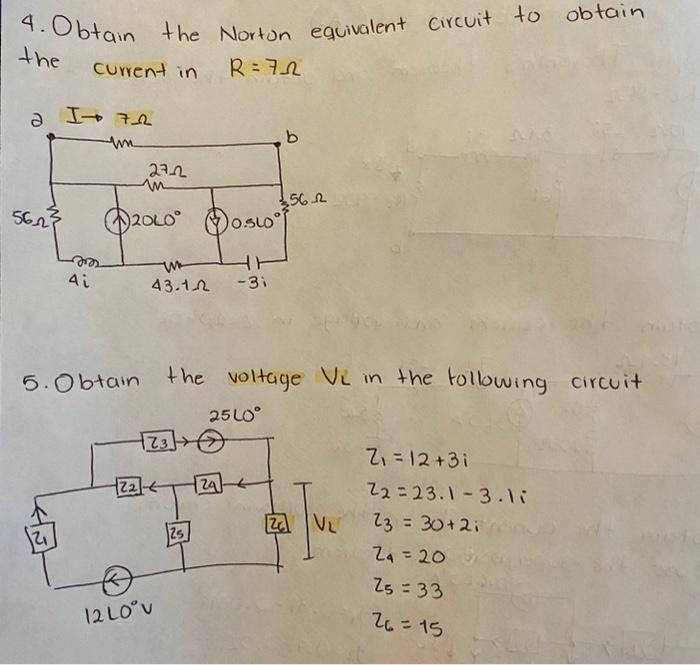 4. Obtain the Norton equivalent circuit to obtain
the current in R = 7Ω
a I→ 7Ω
b
27Ω
56Ω
20∠0°
0.5∠0°
56Ω
4i
43.1Ω
-3i
5. Obtain the voltage VL in the following circuit
25∠0°
Z3
Z2
Z4
Z1
Z5
Z6
VL
12∠0°V
Z1 = 12+3i
Z2 = 23.1-3.1i
Z3 = 30+2i
Z4 = 20
Z5 = 33
Z6 = 15